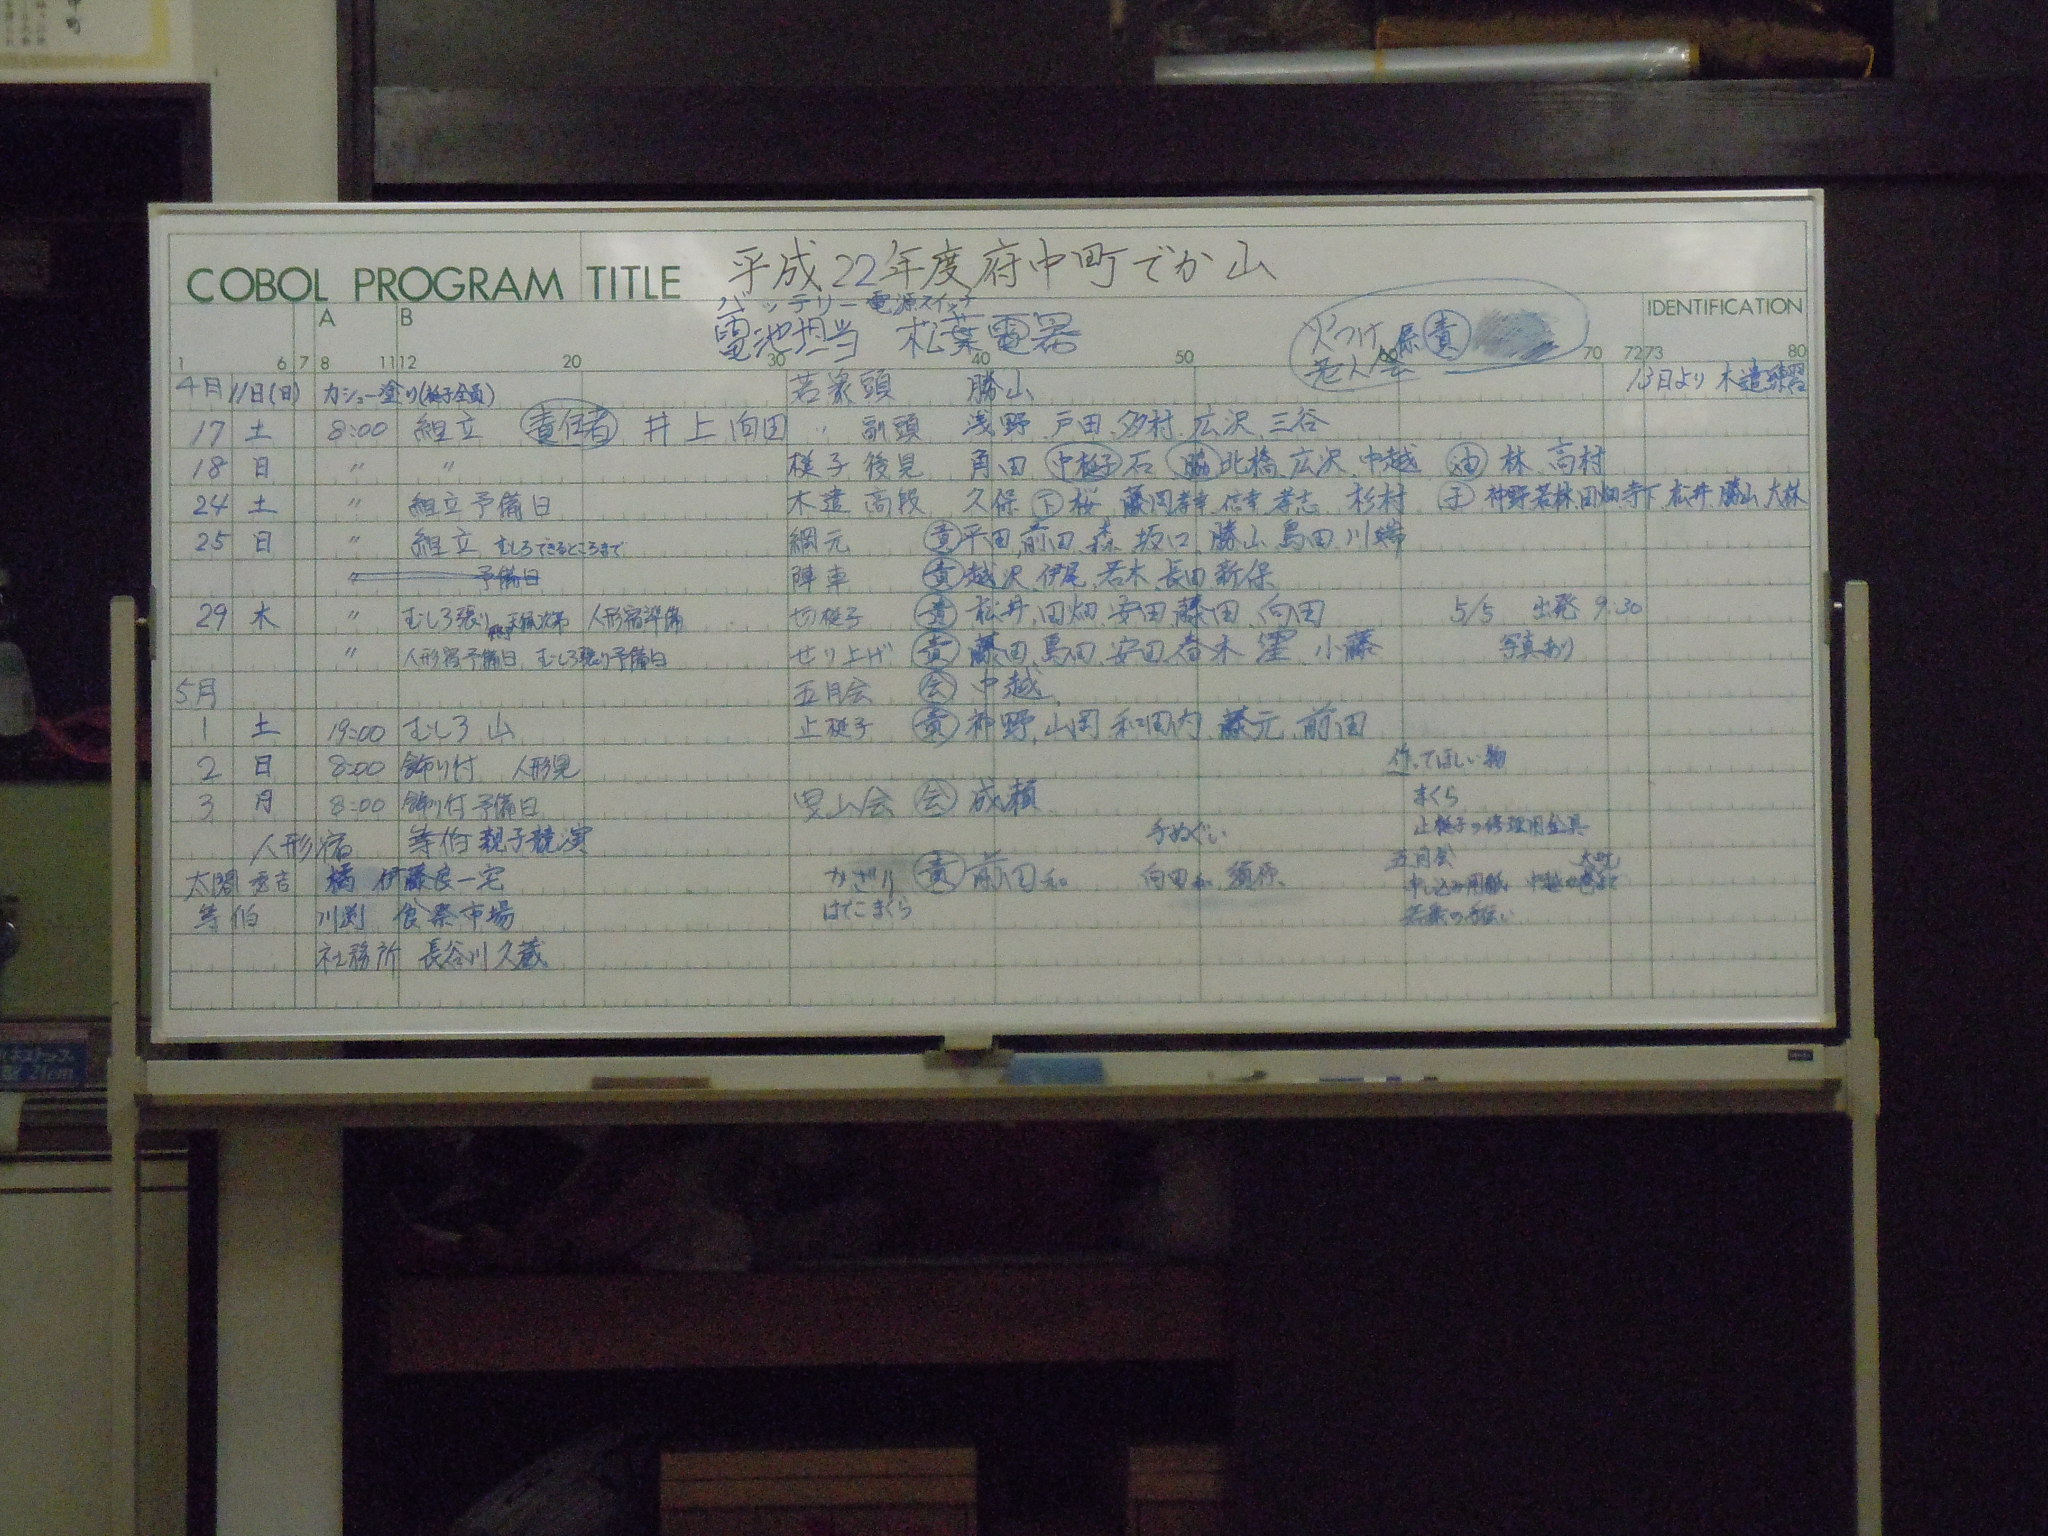 COBOL PROGRAM TITLE 平成22年度府中町でか山
バッテリー電源スイッチ
IDENTIFICATION
A B
電池担当 松葉電器
火つけ 係 責
老人会
1 6 7 8 11 12 20 30 40 50 60 70 72 73 80
4月 11日(日) カシュー塗り(梃子全員) 若衆頭 勝山 13日より 木遣練習
17 土 8:00 組立 責任者 井上 向田 〃 副頭 浅野 戸田 多村 広沢 三谷
18 日 〃 〃 梃子 後見 角田 中梃子 石 脇 北橋 広沢 中越 油 林 高村
24 土 〃 組立予備日 木遣 高段 久保 下 桜 藤岡孝幸 信幸 孝志 杉村 子 神野 若林 田畑 寺下 松井 勝山 大林
25 日 〃 組立 むしろできるところまで 綱元 責 平田 前田 森 坂口 勝山 島田 川端
〃 予備日 陣車 責 越沢 伊尾 若木 長田 新保
29 木 〃 むしろ張り 天候次第 人形宿準備 切梃子 責 松井 田畑 安田 藤田 向田 5/5 出発 9:30
〃 人形宿予備日 むしろ張り予備日 せり上げ 責 藤田 島田 安田 春木 窪 小藤 写真あり
5月 五月会 会 中越
1 土 19:00 むしろ山 止梃子 責 神野 山岡 和田内 藤元 前田
2 日 8:00 飾り付 人形見 作ってほしい物
3 月 8:00 飾り付予備日 曳山会 会 成頼 まくら
人形宿 等伯親子競演 手ぬぐい 止梃子の修理用金具
太閤秀吉 橘 伊藤良一宅 かざり 責 前田和 向田和 須原 五月会
申し込み用紙
等伯 川渕 食祭市場 はでこまくら 若衆の手伝い
社務所 長谷川久蔵